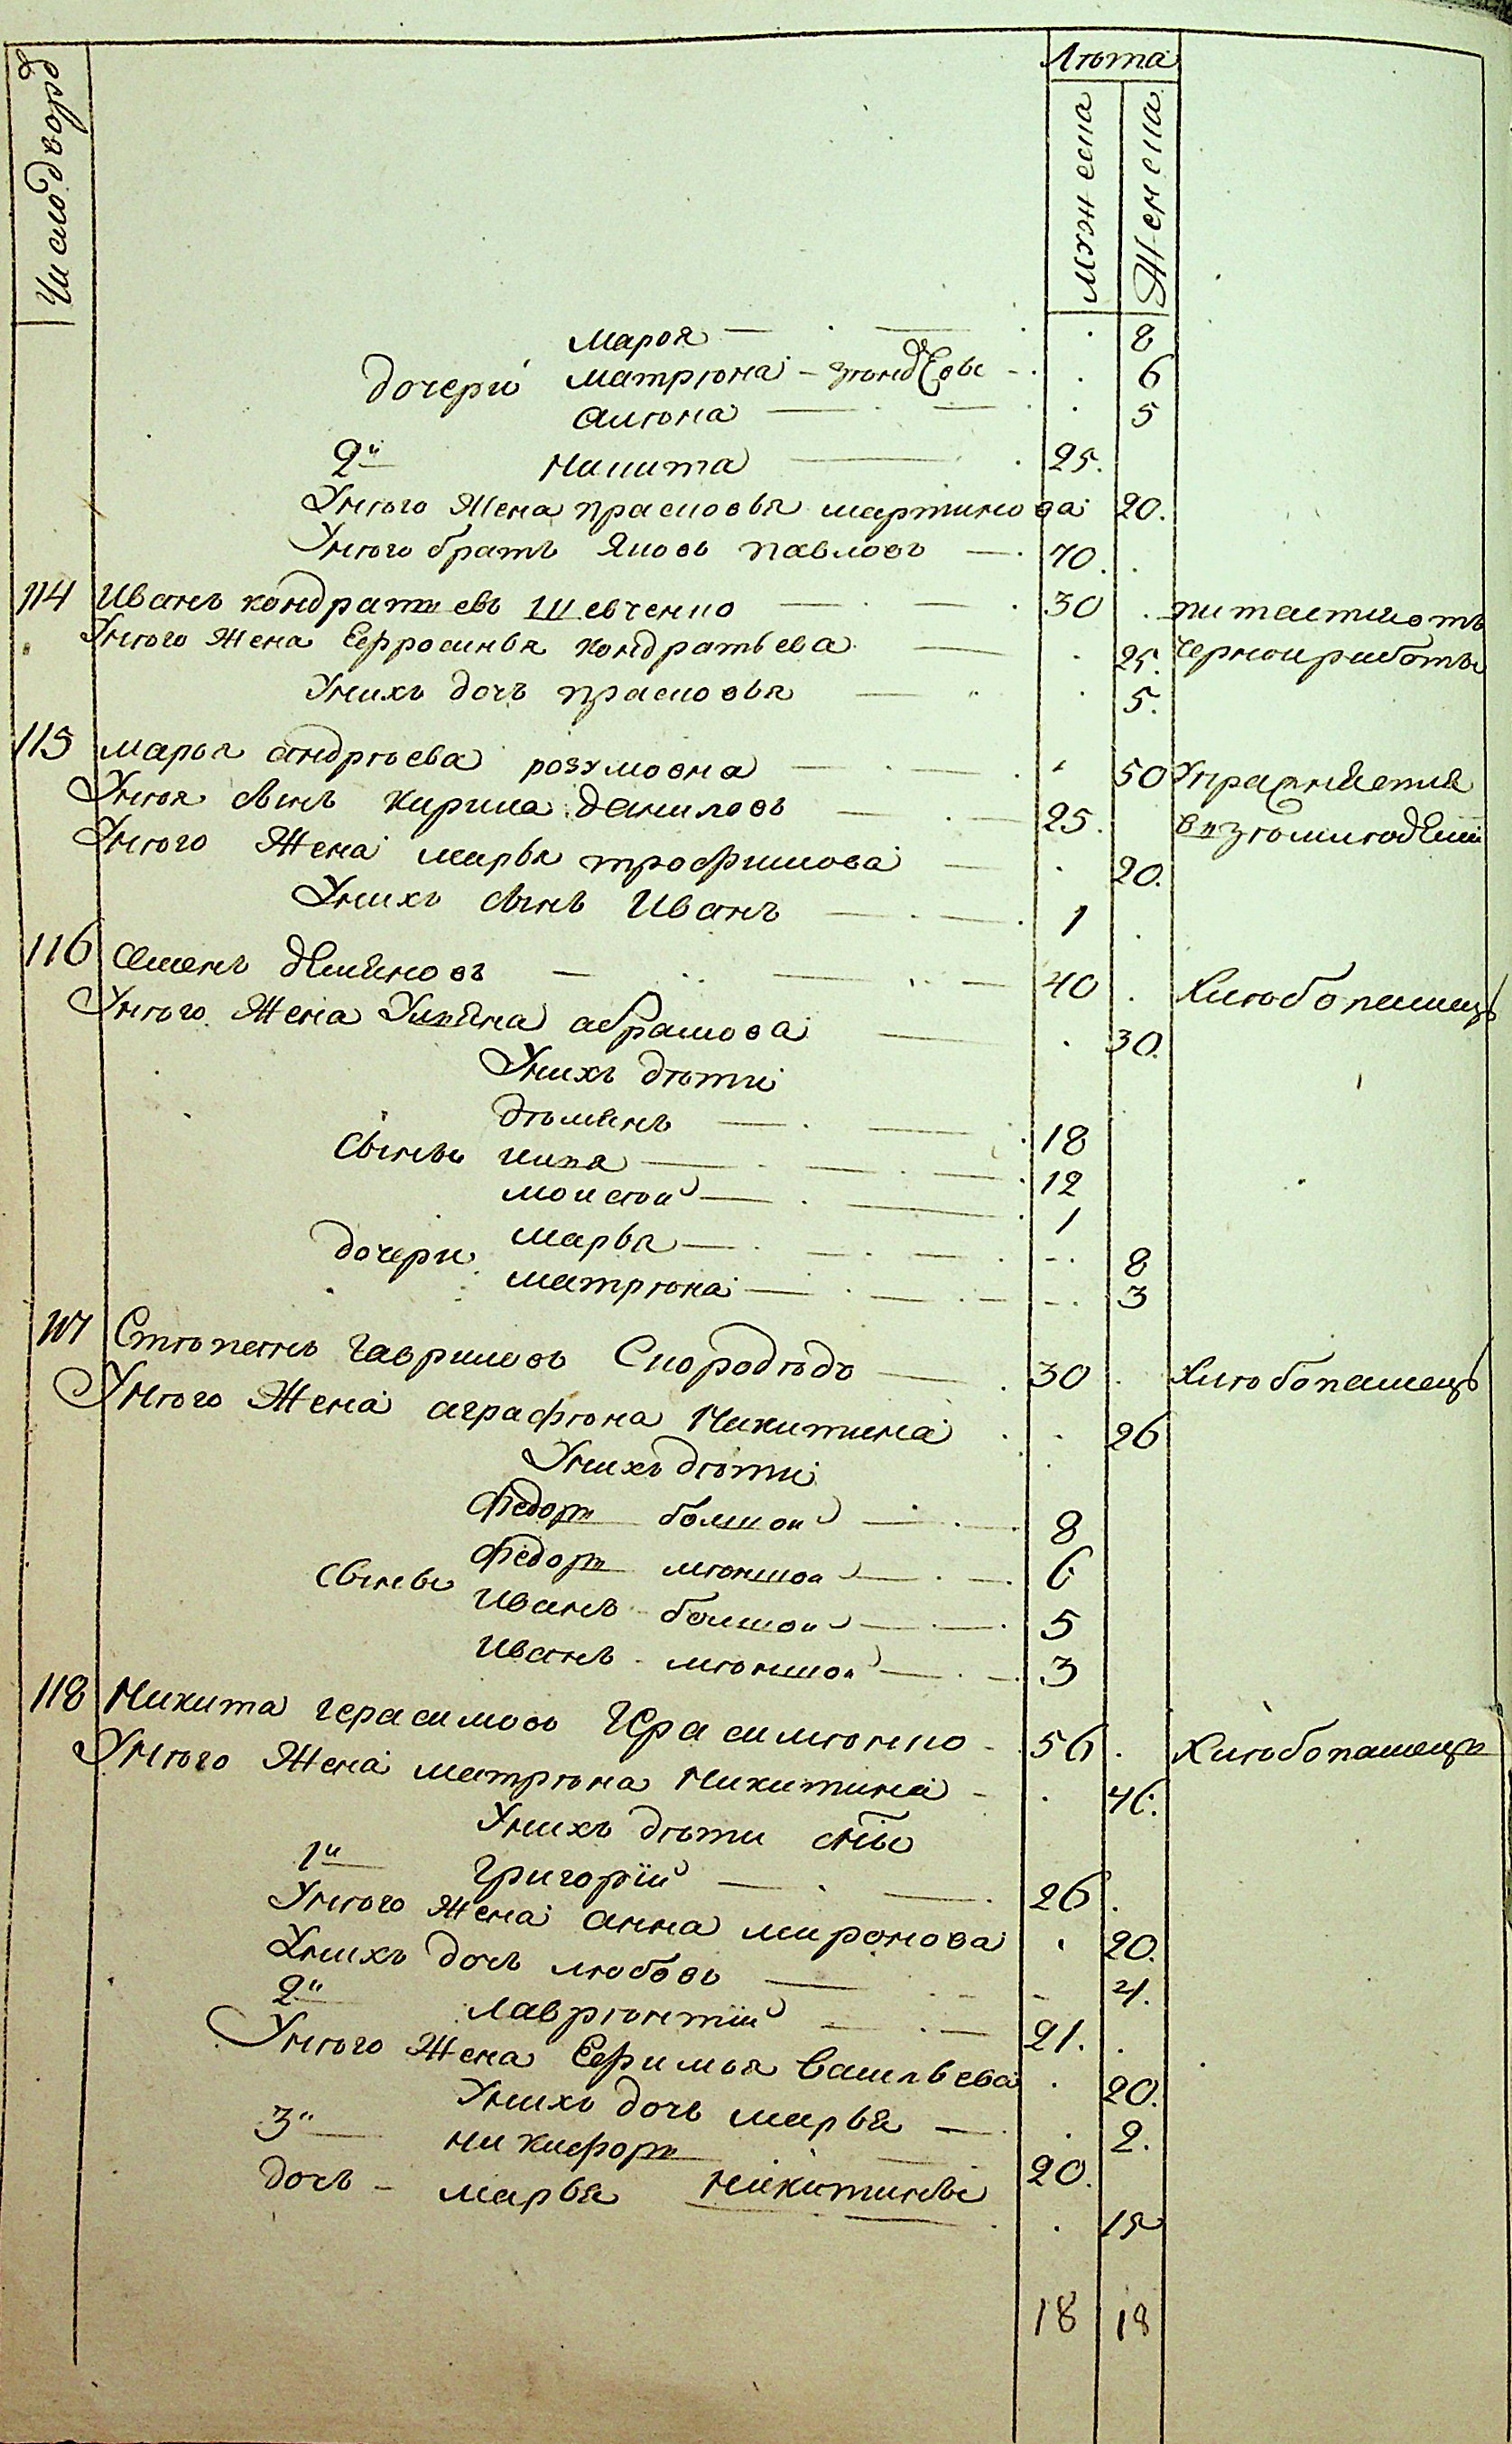 Число дворъ
Лѣта
Мужеска
Женска
Марѳа 8
дочери Матрюна 6
Алюна 5
2й Никита 25.
Унѣго Жена прасковья мартинова 20.
Унѣго братъ Яковъ павловъ 70.
114 Иванъ кондратиевъ Шевченко 30 питаетца отъ
Унѣго Жена Еѳросинья кондратьева 25. Чернои работы
Унихъ доч прасковья 5.
115 марья андрѣева розумовна 50 Упражняетца
Унѣя сынъ кирила даниловъ 25. взѣмлѣделии
Унѣго Жена марья трофимова 20.
Унихъ сынъ Иванъ 1
116 Семенъ дѣмяновъ 40 Хлѣбопашецъ
Унѣго Жена Ульяна абрамова 30.
Унихъ дѣти
дѣмянъ 18
сыны илья 12
моисѣй 1
дочери марья 8
матрюна 3
117 Стѣпанъ гавриловъ Скородѣдъ 30 Хлѣбопашецъ
Унѣго Жена аграфѣна Никитина 26
Унихъ дѣти
Федоръ болшои 8
Федоръ мѣншои 6
сыны Иванъ болшои 5
Иванъ мѣншои 3
118 Никита герасимовъ Герасимѣнко 56 Хлѣбопашецъ
Унѣго Жена матрюна Никитина 46.
Унихъ дѣти сны
1й Григорїй 26
Унѣго Жена анна миронова 20.
Унихъ доч любовь 4.
2й Лаврѣнтїй 21.
Унѣго Жена Еѳимья васильева 20.
Унихъ доч марья 2.
3й никифоръ 20.
доч марья Никитины 15
18 18